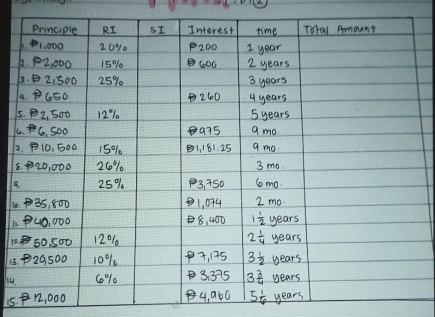 Principle RI SI Interest time Total Amount
1. ₱1,000 20% ₱200 1 year
2. ₱2,000 15% ₱600 2 years
3. ₱2,500 25% 3 years
4. ₱650 ₱260 4 years
5. ₱2,500 12% 5 years
6. ₱6,500 ₱975 9 mo.
7. ₱10,500 15% ₱1,181.25 9 mo.
8. ₱20,000 26% 3 mo.
9. 25% ₱3,750 6 mo.
10. ₱35,800 ₱1,074 2 mo.
11. ₱40,000 ₱8,400 1 1/2 years
12. ₱50,500 12% 2 1/4 years
13. ₱20,500 10% ₱7,175 3 1/2 years
14 6% ₱3,375 3 3/4 years
15. ₱12,000 ₱4,960 5 1/6 years